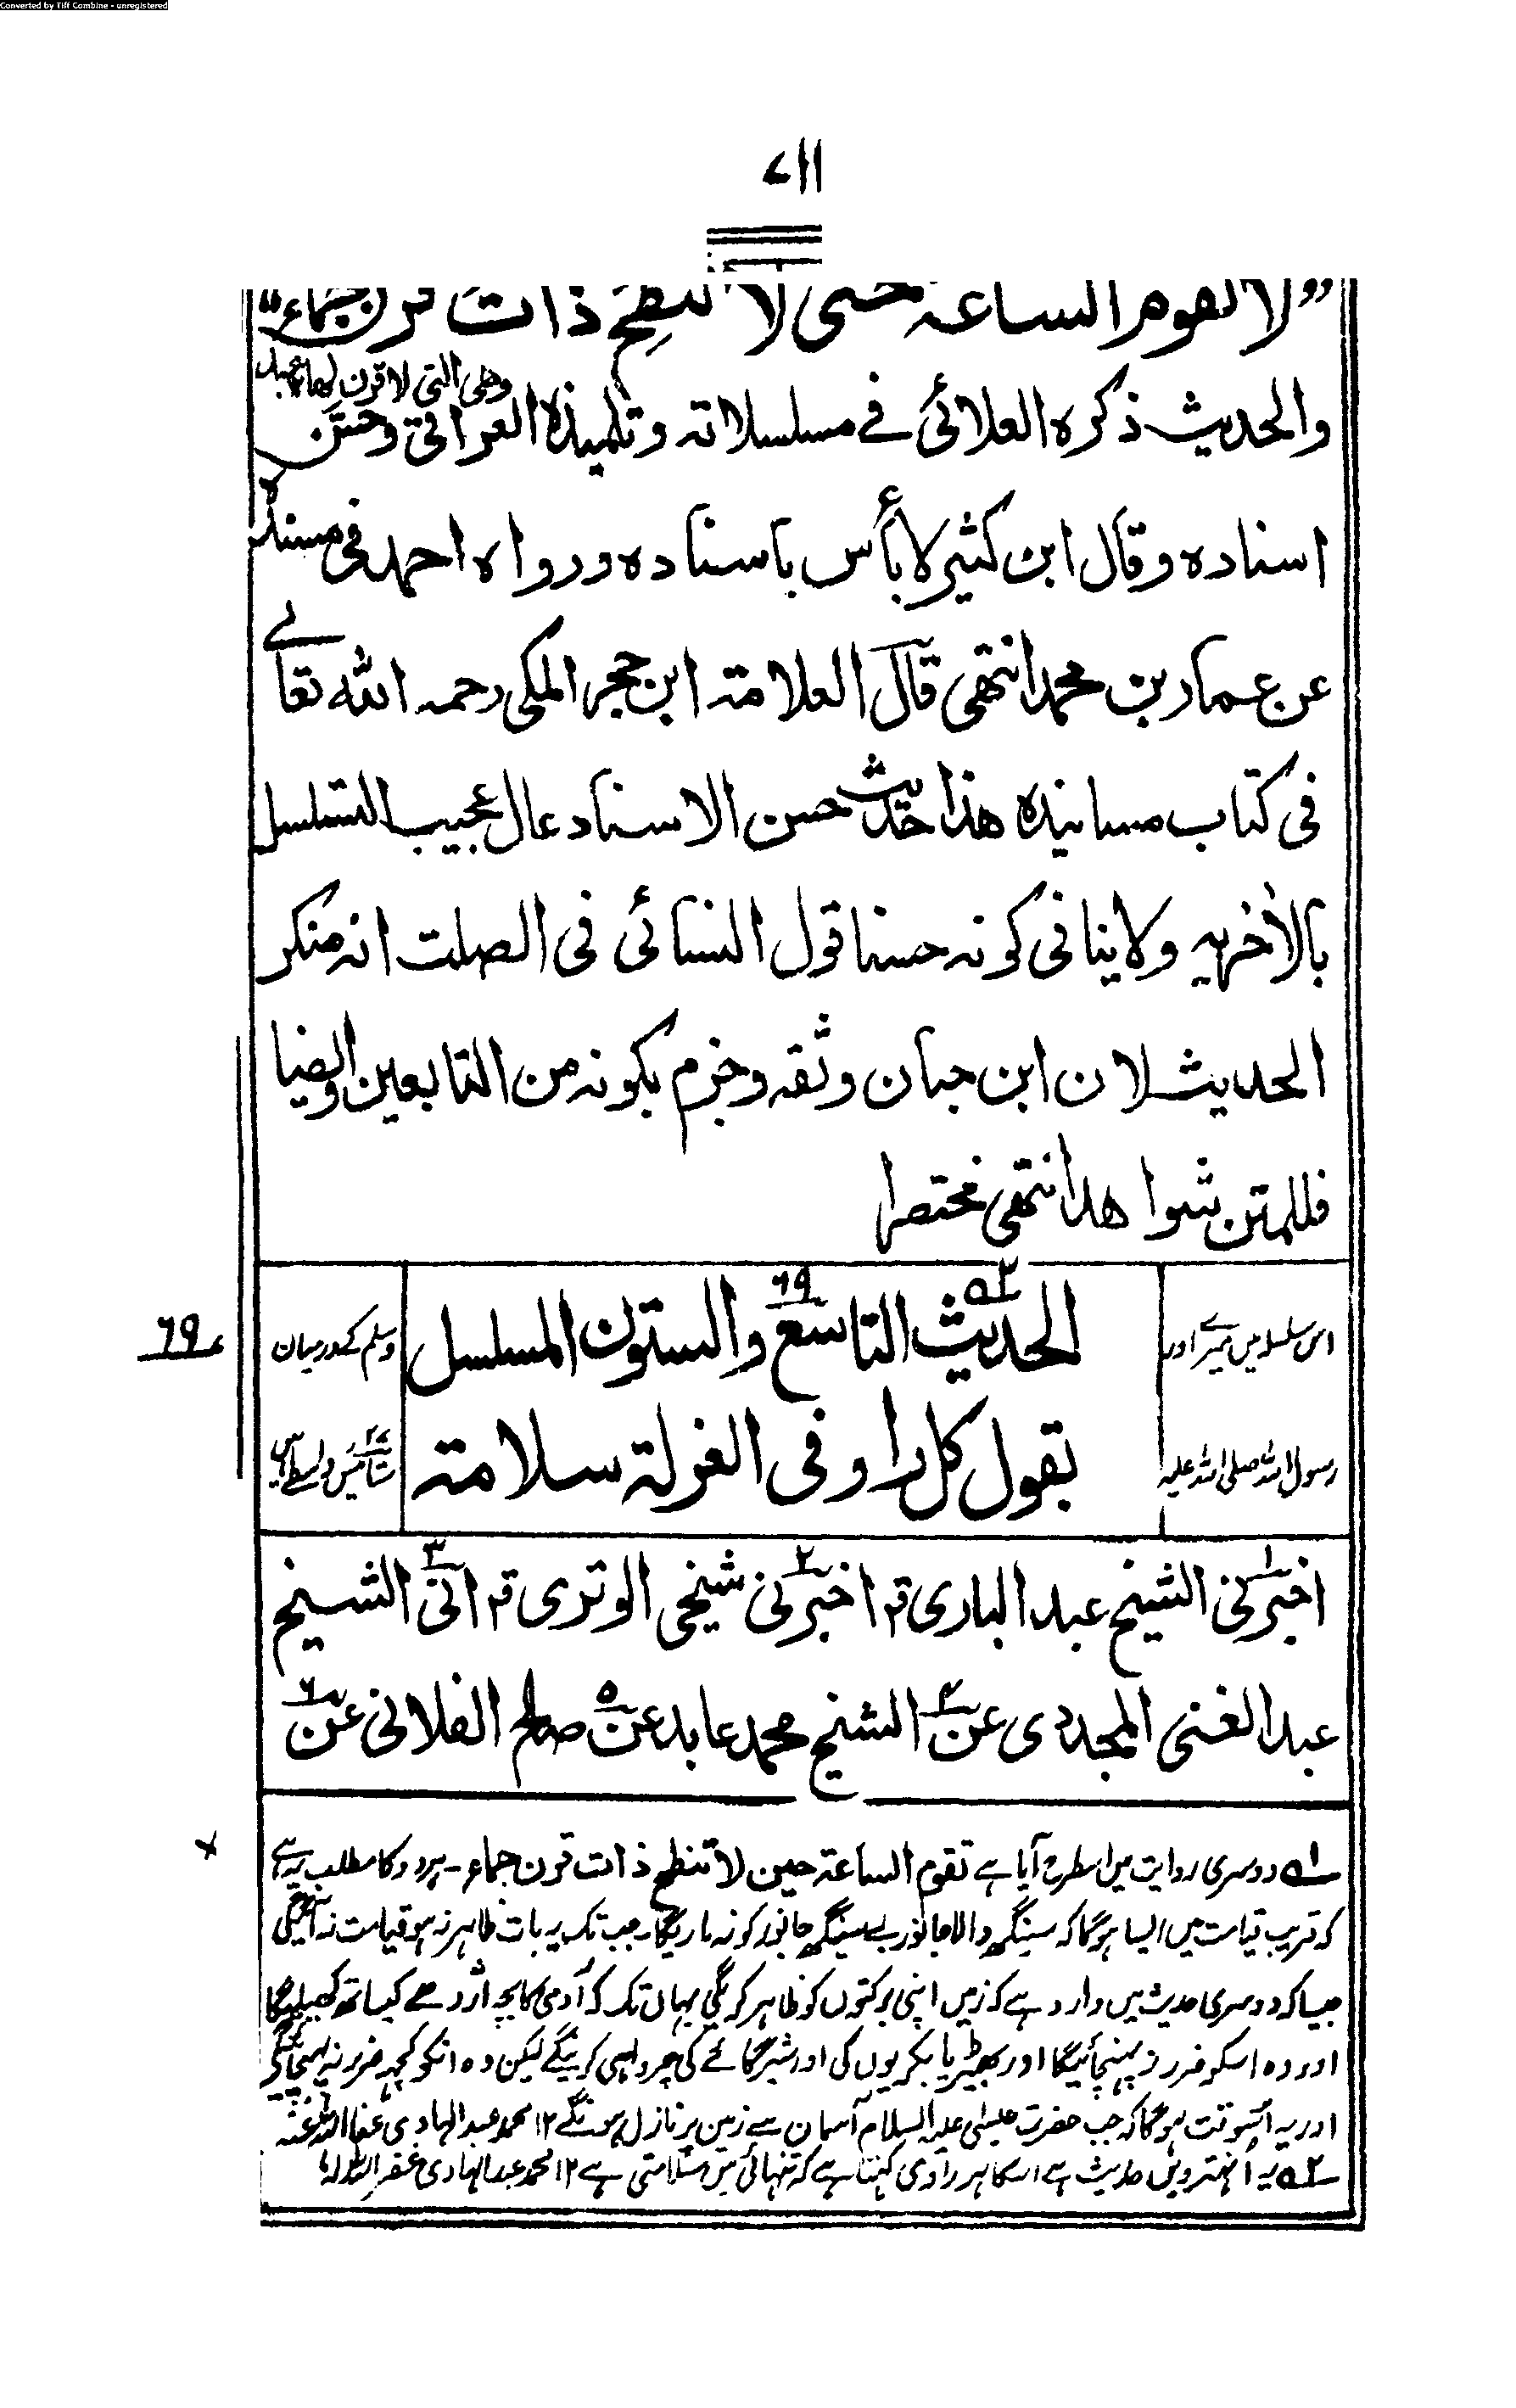 Converted by Tiff Combine - unregistered
۷۱۱
”لا تقوم الساعة حتى لا تنطح ذات قرن جماء“
وهي التي لا قرن لها
والحديث ذكره العلائى فے مسلسلاته وتلميذه العراقي وحسن
اسناده وقال ابن كثير لا بأس باسناده ورواه احمد فى مسنده
عن عمار بن محمد انتهى قال العلامة ابن حجر المكى رحمه الله تعالے
فى كتاب مسانيده هذا حديث حسن الاسناد عال عجيب التسلسل
بالأخرية ولا ينافى كونه حسنا قول النسائى فى الصلت انه منكر
الحديث لان ابن حبان وثقه وجزم بكونه من التابعين وايضا
فللمتن شواهد انتهى مختصرا
اس سلسلہ میں میرے اور
الحديث ۵۲ التاسع ۶۹ والستون المسلسل
وسلم کے درمیان
۶۹
رسول اللہ صلی اللہ علیہ
بقول كل راو فى العزلة سلامة
ستائیس ۲۷ واسطے ہیں
اخبرنى ۱ الشيخ عبد البارى قر اخبرنى ۲ شيخى الوترى قر انى ۳ الشيخ
عبد الغنى المجددى عن ۴ الشيخ محمد عابد عن ۵ صالح الفلانى عن ۶
۵۱ دوسری روایت میں اسطرح آیا ہے تقوم الساعة حين لا تنطح ذات قرن جماء - ہر دو کا مطلب یہ ہے
کہ قریب قیامت میں ایسا ہوگا کہ سینگھ والا جانور بے سینگھ جانور کو نہ ماریگا۔ جب تک یہ بات ظاہر نہ ہو قیامت نہ آئیگی
جیسا کہ دوسری حدیث میں وارد ہے کہ زمین اپنی برکتوں کو ظاہر کریگی یہاں تک کہ آدمی کا بچہ اژدھے کیساتھ کھیلیگا
اور وہ اسکو ضرر نہ پہنچائیگا اور بھیڑیا بکریوں کی اور شیر گائے کی چرواہی کرینگے لیکن وہ انکو کچھ ضرر نہ پہنچائینگے
اور یہ اسوقت ہوگا کہ جب حضرت عیسیٰ علیہ السلام آسمان سے زمین پر نازل ہونگے ۱۲ محمد عبد الہادی عفا اللہ عنہ
۵۲ یہ انہترویں حدیث ہے اسکا ہر راوی کہتا ہے کہ تنہائی میں سلامتی ہے ۱۲ محمد عبد الہادی غفر اللہ لہ